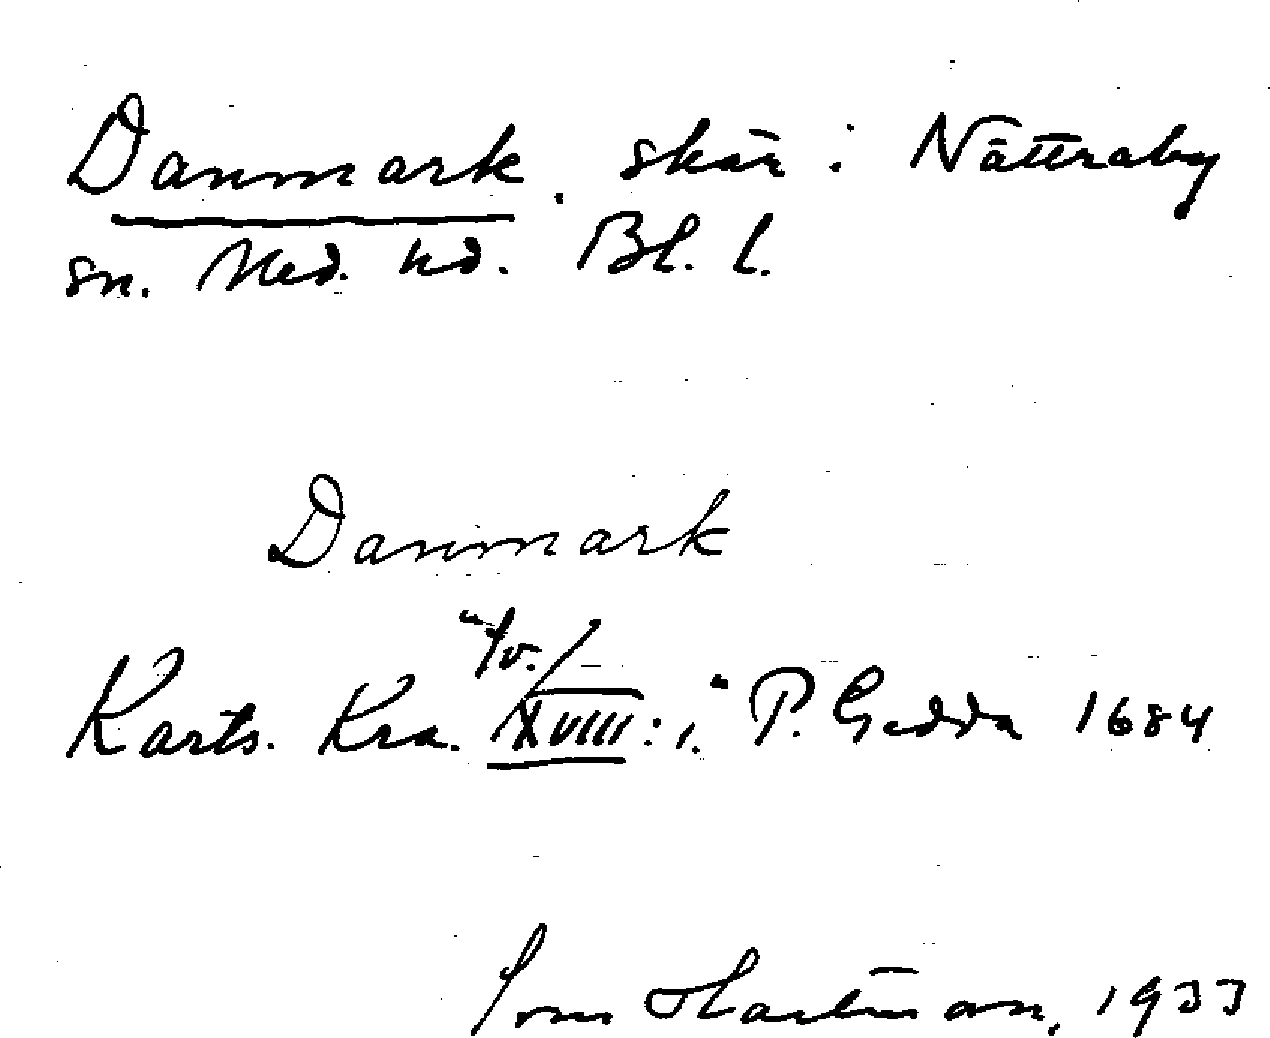 Danmark. skär i Nättraby
sn. Med. hd. Bl. l.
Danmark
Karts. Kra. XVIII: i. P. Gedda 1684
Hartman, 1933